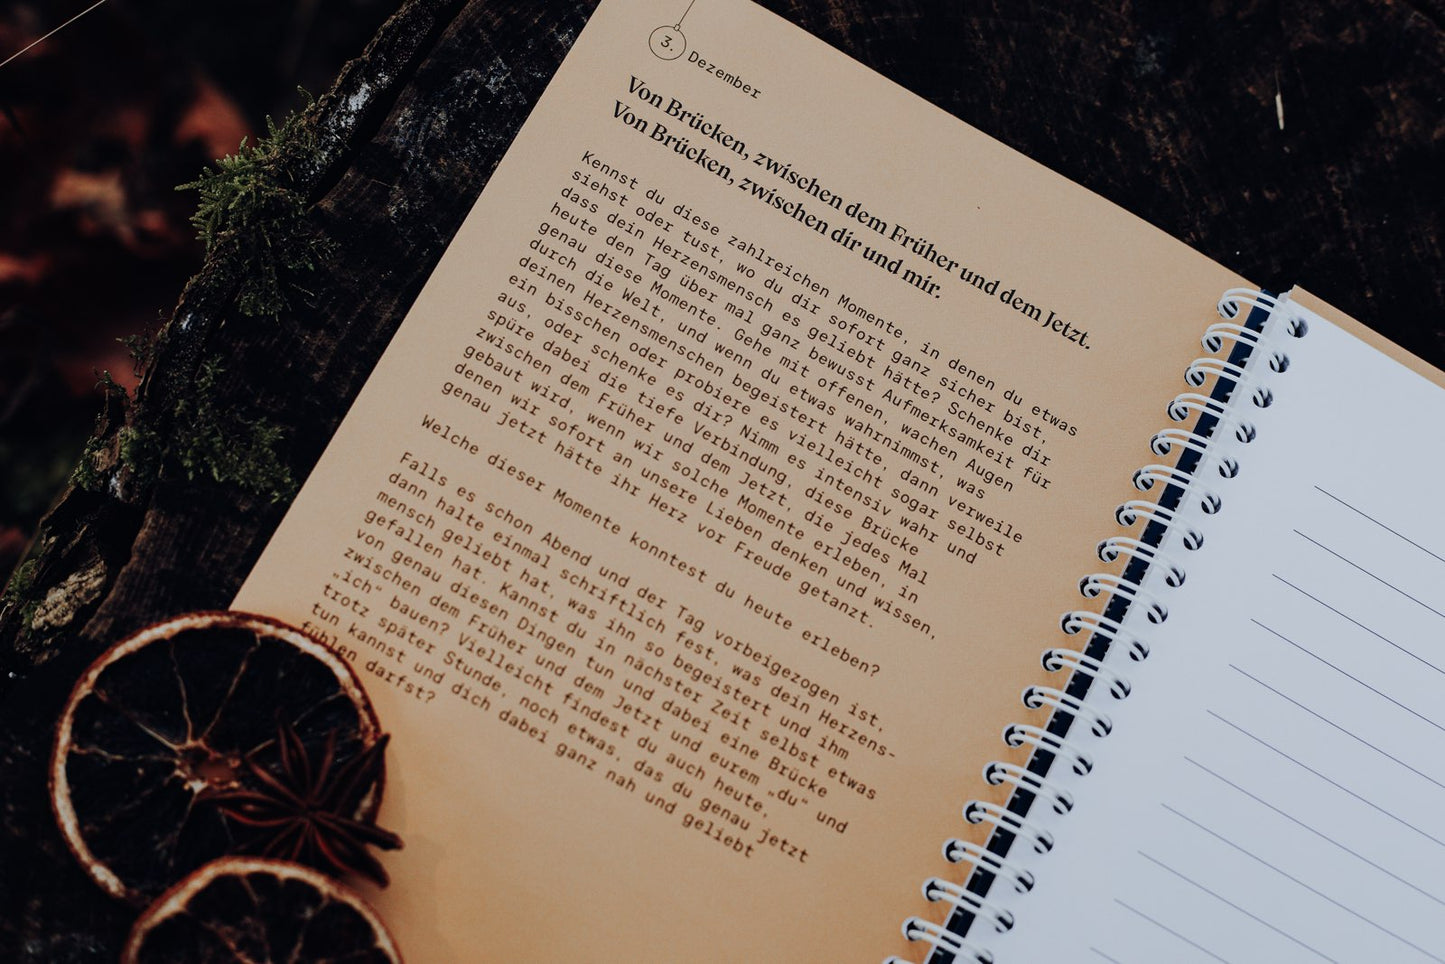 3. Dezember
Von Brücken, zwischen dem Früher und dem Jetzt.
Von Brücken, zwischen dir und mir.
Kennst du diese zahlreichen Momente, in denen du etwas
siehst oder tust, wo du dir sofort ganz sicher bist,
dass dein Herzensmensch es geliebt hätte? Schenke dir
heute den Tag über mal ganz bewusst Aufmerksamkeit für
genau diese Momente. Gehe mit offenen, wachen Augen
durch die Welt, und wenn du etwas wahrnimmst, was
deinen Herzensmenschen begeistert hätte, dann verweile
ein bisschen oder probiere es vielleicht sogar selbst
aus, oder schenke es dir? Nimm es intensiv wahr und
spüre dabei die tiefe Verbindung, diese Brücke
zwischen dem Früher und dem Jetzt, die jedes Mal
gebaut wird, wenn wir solche Momente erleben, in
denen wir sofort an unsere Lieben denken und wissen,
genau jetzt hätte ihr Herz vor Freude getanzt.
Welche dieser Momente konntest du heute erleben?
Falls es schon Abend und der Tag vorbeigezogen ist,
dann halte einmal schriftlich fest, was dein Herzens-
mensch geliebt hat, was ihn so begeistert und ihm
gefallen hat. Kannst du in nächster Zeit selbst etwas
von genau diesen Dingen tun und dabei eine Brücke
zwischen dem Früher und dem Jetzt und eurem „du“ und
„ich“ bauen? Vielleicht findest du auch heute,
trotz später Stunde, noch etwas, das du genau jetzt
tun kannst und dich dabei ganz nah und geliebt
fühlen darfst?